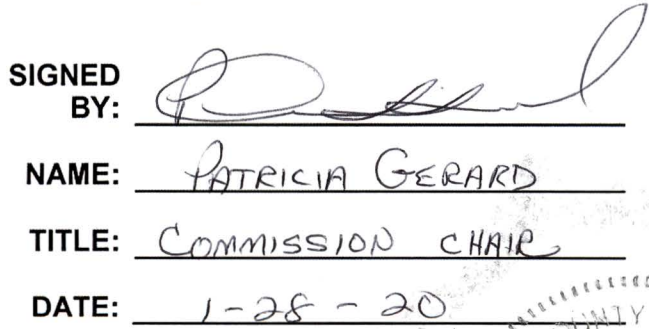 SIGNED
BY:
NAME: PATRICIA GERARD
TITLE: COMMISSION CHAIR
DATE: 1-28-20